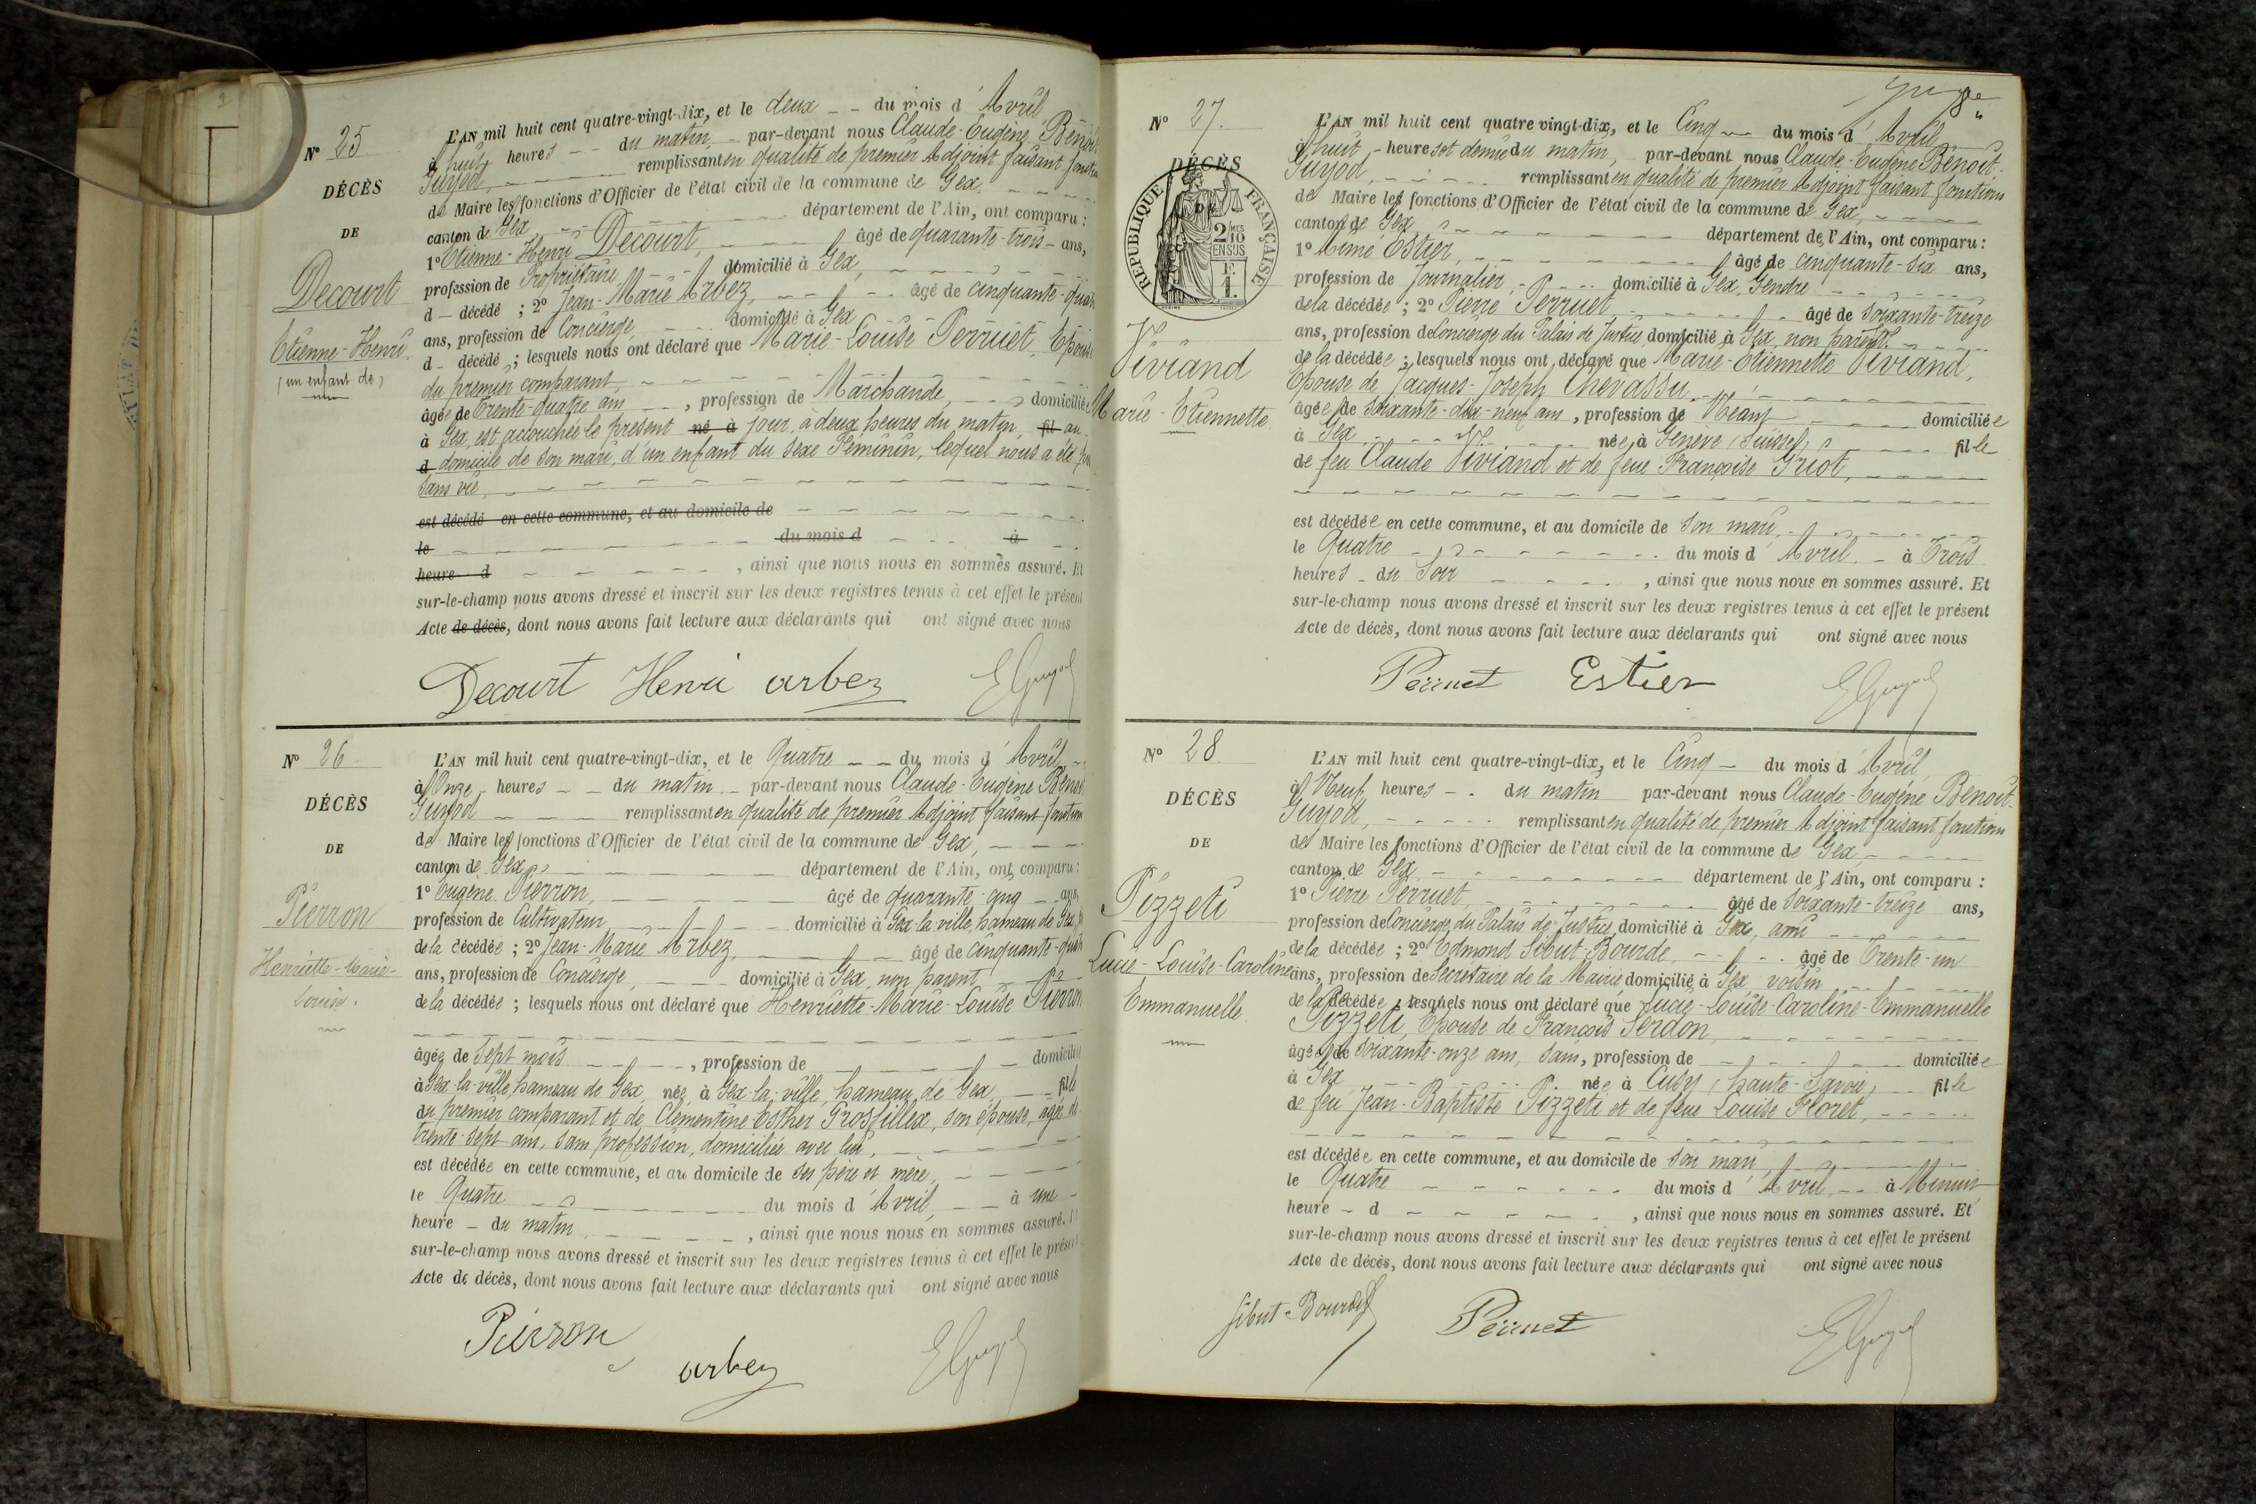 N° 25
DÉCÈS
DE
Decourt
Etienne-Henri
(un enfant de)
L'AN mil huit cent quatre-vingt-dix, et le deux -- du mois d'Avril
à huit heures -- du matin - par-devant nous Claude-Eugène Benoit
Guyod, remplissant en qualité de premier Adjoint faisant fonction
de Maire les fonctions d'Officier de l'état civil de la commune de Gex
canton de Gex département de l'Ain, ont comparu :
1° Etienne-Henri Decourt, âgé de quarante-trois - ans,
profession de Propriétaire domicilié à Gex,
d - décédé ; 2° Jean-Marie Arbez, âgé de cinquante-quatre
ans, profession de Concierge, domicilié à Gex
d - décédé ; lesquels nous ont déclaré que Marie-Louise Perruet, Epouse
du premier comparant,
âgée de Trente-quatre ans, profession de Marchande, domiciliée
à Gex, est accouchée le présent né à jour, à deux heures du matin, fil au
d domicile de son mari, d'un enfant du sexe Féminin, lequel nous a été
sans vie,
est décédé en cette commune, et au domicile de
le du mois d à
heure d , ainsi que nous nous en sommes assuré. Et
sur-le-champ nous avons dressé et inscrit sur les deux registres tenus à cet effet le présent
Acte de décès, dont nous avons fait lecture aux déclarants qui ont signé avec nous
Decourt Henri arbez EGuyod
N° 26
DÉCÈS
DE
Pierron
Henriette-Marie-
Louise.
L'AN mil huit cent quatre-vingt-dix, et le Quatre -- du mois d'Avril
à Onze heures -- du matin - par-devant nous Claude-Eugène Benoit
Guyod remplissant en qualité de premier Adjoint faisant fonction
de Maire les fonctions d'Officier de l'état civil de la commune de Gex,
canton de Gex département de l'Ain, ont comparu :
1° Eugène Pierron, âgé de quarante-cinq - ans,
profession de Cultivateur domicilié à Gex-la-ville, hameau de Gex,
de la décédée ; 2° Jean-Marie Arbez, âgé de cinquante-quatre
ans, profession de Concierge, domicilié à Gex, non parent
de la décédée ; lesquels nous ont déclaré que Henriette-Marie-Louise Pierron
âgée de sept mois, profession de domiciliée
à Gex-la-ville, hameau de Gex, née à Gex-la-ville, hameau de Gex, fille
du premier comparant et de Clémentine Esther Grosfillex, son épouse, âgée de
trente-sept ans, sans profession, domiciliée avec lui,
est décédée en cette commune, et au domicile de ses père et mère,
le Quatre du mois d'Avril, à une
heure - du matin, ainsi que nous nous en sommes assuré.
sur-le-champ nous avons dressé et inscrit sur les deux registres tenus à cet effet le présent
Acte de décès, dont nous avons fait lecture aux déclarants qui ont signé avec nous
Pierron
arbez EGuyod
N° 27.
DÉCÈS
RÉPUBLIQUE FRANÇAISE
2/10 MES
EN SUS
F.
1.
Viviand
Marie-Etiennette
L'AN mil huit cent quatre vingt-dix, et le Cinq -- du mois d'Avril
à huit - heures et demie du matin, par-devant nous Claude-Eugène Benoit
Guyod, remplissant en qualité de premier Adjoint faisant fonctions
de Maire les fonctions d'Officier de l'état civil de la commune de Gex,
canton de Gex département de l'Ain, ont comparu :
1° Aimé Estier, âgé de cinquante-six ans,
profession de Journalier, domicilié à Gex, Gendre
de la décédée ; 2° Pierre Perruet, âgé de soixante-treize
ans, profession de Concierge du Palais de Justice, domicilié à Gex, non parent
de la décédée ; lesquels nous ont déclaré que Marie-Etiennette Viviand,
Epouse de Jacques-Joseph Chevassu,
âgée de soixante-dix-neuf ans, profession de Néant domiciliée
à Gex née à Genève (Suisse), fille
de feu Claude Viviand et de feue Françoise Griot,
est décédée en cette commune, et au domicile de son mari,
le Quatre du mois d'Avril - à Trois
heures - du Soir, ainsi que nous nous en sommes assuré. Et
sur-le-champ nous avons dressé et inscrit sur les deux registres tenus à cet effet le présent
Acte de décès, dont nous avons fait lecture aux déclarants qui ont signé avec nous
Perruet Estier EGuyod
N° 28
DÉCÈS
DE
Pizzeti
Lucie-Louise-Caroline
Emmanuelle
L'AN mil huit cent quatre-vingt-dix, et le Cinq - du mois d'Avril
à Neuf heures - du matin par-devant nous Claude-Eugène Benoit
Guyod, remplissant en qualité de premier Adjoint faisant fonctions
de Maire les fonctions d'Officier de l'état civil de la commune de Gex
canton de Gex département de l'Ain, ont comparu :
1° Pierre Perruet, âgé de soixante-treize ans,
profession de Concierge du Palais de Justice, domicilié à Gex, ami
de la décédée ; 2° Edmond Sibut-Bourde âgé de Trente-un
ans, profession de Secrétaire de la Mairie domicilié à Gex, voisin
de la décédée, lesquels nous ont déclaré que Lucie-Louise-Caroline-Emmanuelle
Pizzeti, Epouse de François Serdon,
âgée de soixante-onze ans, sans, profession de domiciliée
à Gex née à Cusy (haute-Savoie) fille
de feu Jean-Baptiste Pizzeti et de feue Louise Floret,
est décédée en cette commune, et au domicile de son mari,
le Quatre du mois d'Avril -- à Minuit
heure - d , ainsi que nous nous en sommes assuré. Et
sur-le-champ nous avons dressé et inscrit sur les deux registres tenus à cet effet le présent
Acte de décès, dont nous avons fait lecture aux déclarants qui ont signé avec nous
Sibut-Bourde Perruet EGuyod